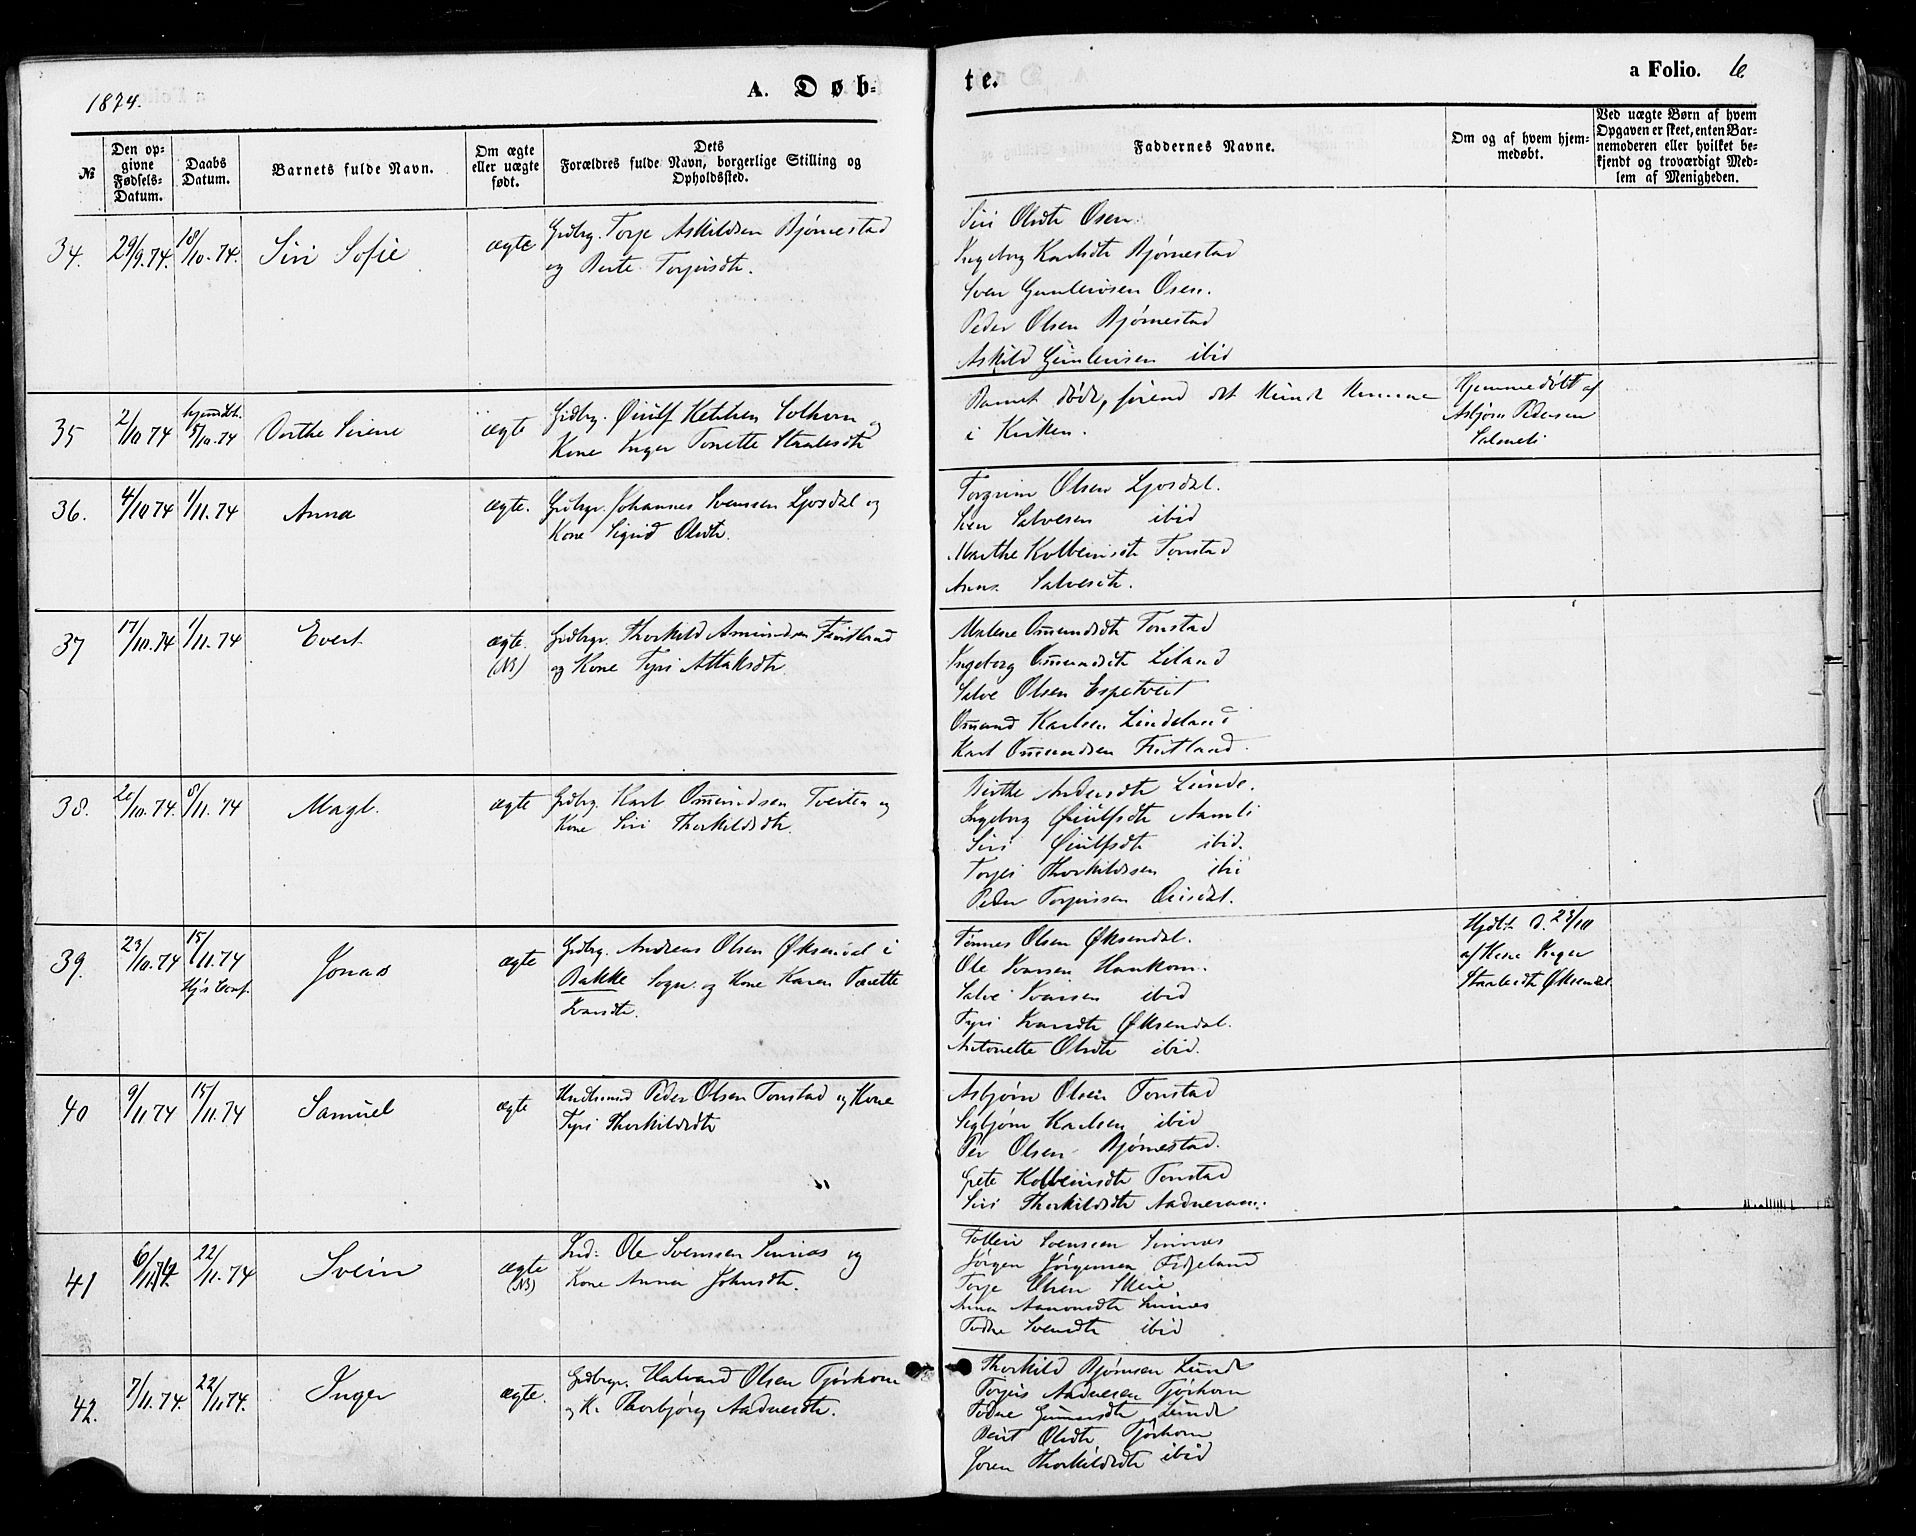 1874.
A. Døb-
te.
a Folio. 6
№
Den op-
givne
Fødsels-
Datum.
Daabs
Datum.
Barnets fulde Navn.
Om ægte
eller uægte
født.
Dets
Forældres fulde Navn, borgerlige Stilling og
Opholdssted.
Faddernes Navne.
Om og af hvem hjem-
medøbt.
Ved uægte Børn af hvem
Opgaven er skeet, enten Bar-
nemoderen eller hvilket be-
kjendt og troværdigt Med-
lem af Menigheden.
34. 29/9.74. 18/10.74. Siri Sofie ægte Grdbrg. Torje Askildsen Bjørnestad
og Berte Torjeisdtr.
Siri Olsdtr Osen.
Ingeborg Karlsdtr Bjørnestad
Sven Gunleivsen Osen.
Peder Olsen Bjørnestad
Askild Gunleivsen ibid
35 2/10 74 hjemdbt. 5/10.74 Dorthe Serine ægte Grdbrg. Øiulf Ketelsen Solhom og
Kone Inger Tonette Staalesdtr
Barnet døde, førend det kunde komme
i Kirken.
Hjemmedøbt af
Asbjørn Pedersen
Salmeli
36. 4/10 74 1/11.74 Anna ægte. Grdbrgr. Johannes Svenssen Ljosdal og
Kone Sigrid Olsdtr.
Torgrim Olsen Ljosdal.
Sven Salvesen ibid
Marthe Kolbeinsdtr Tonstad
Anna Salvesdtr.
37 17/10.74 1/11.74 Evert ægte. (NB) Grdbrgr. Thorkild Amundsen Fintland
og Kone Tyri Attaksdtr.
Malene Omundsdtr Tonstad
Ingeborg Omundsdtr Liland
Salve Olsen Espetveit
Omund Karlsen Lindeland
Karl Omundsen Fintland.
38. 21/10.74. 8/11.74 Magl. ægte Grdbrg. Karl Omundsen Tveiten og
Kone Siri Thorkildsdtr.
Birthe Andersdtr Lunde.
Ingeborg Øiulfsdtr Aamli
Siri Øiulfsdtr ibid.
Torjes Thorkildssen ibid
Peder Torjussen Ousdal.
39. 23/10.74 15/11.74 Jonas ægte Grdbrg. Andreas Olsen Øksendal i
Bakke Sogn og Kone Karen Tonette
Ivarsdtr.
Tønnes Olsen Øksendal.
Ole Ivarsen Haukom.
Salve Ivarsen ibid
Tyri Ivarsdtr Øksendal.
Antonette Olsdtr ibid.
Hjdbt d. 23/10
af Kone Inger
Staalesdtr Øksendal
40 9/11 74 15/11.74 Samuel ægte Husmand Peder Olsen Tonstad og Kone
Tyri Thorkildsdtr
Asbjørn Olsen Tonstad
Segbjørn Karlsen ibid
Per Olsen Bjørnestad.
Grete Kolbeinsdtr Tonstad
Siri Thorkildsdtr Aadneram.
41 6/11.74. 22/11.74 Svein ægte (NB) Ind: Ole Svenssen Sinnes og
Kone Anna Johnsdtr.
Tolleiv Svenssen Sinnes
Jørgen Jørgensen Fidjeland
Torje Olsen
Anna Aanonsdtr Sinnes
Todne Svensdtr ibid
42. 7/11.74. 22/11.74. Inger ægte. Grdbrgr. Halvard Olsen Tjørhom
og K. Thorbjørg Aadnesdtr.
Thorkild Bjørnsen Lunde
Torjus Aadnesen Tjørhom
Todne Gunnarsdtr Lunde
Berit Olsdtr Tjørhom
Joren Thorkildsdtr ibid